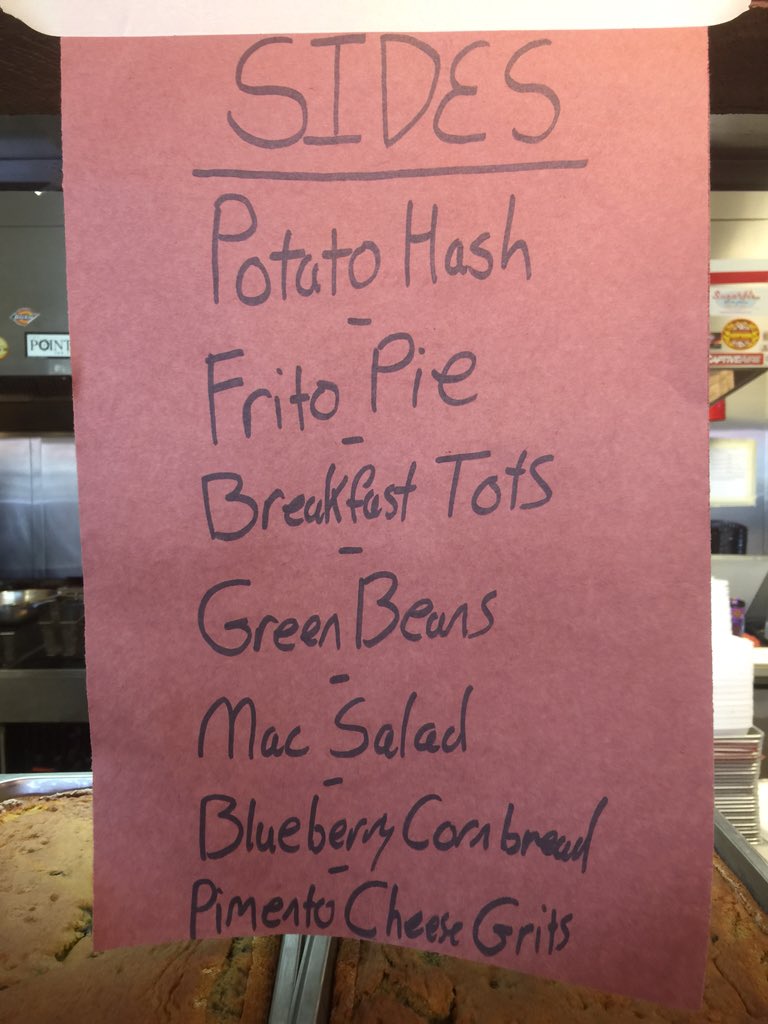 SIDES
Potato Hash
-
Frito Pie
-
Breakfast Tots
-
Green Beans
-
Mac Salad
-
Blueberry Cornbread
-
Pimento Cheese Grits
POINT